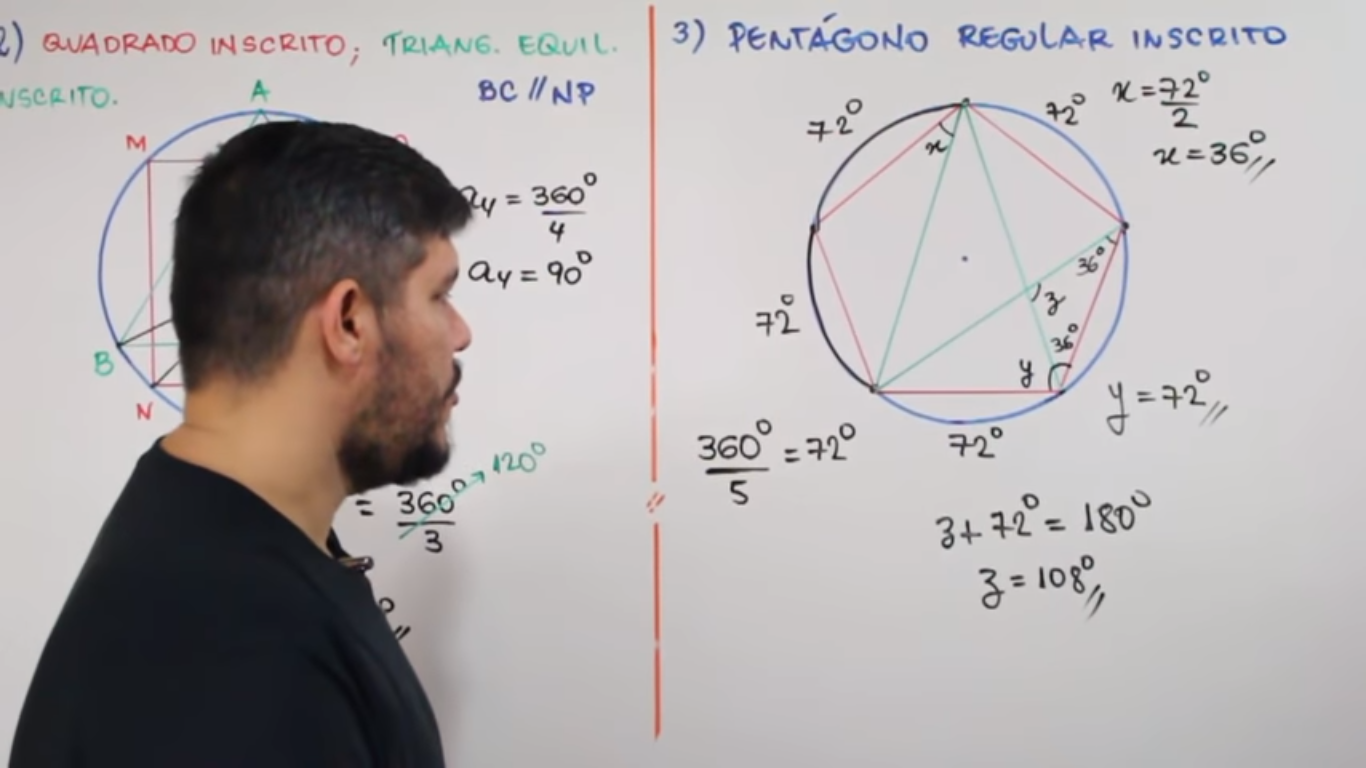 2) QUADRADO INSCRITO; TRIANG. EQUIL.
NSCRITO.
BC // NP
A
M
B
N
a4 = 360°
4
a4 = 90°
= 360° 120°
3
3) PENTÁGONO REGULAR INSCRITO
72°
72°
x = 72°
2
x = 36°
x
36°
z
72°
36°
y
y = 72°
360° = 72°
5
72°
z + 72° = 180°
z = 108°